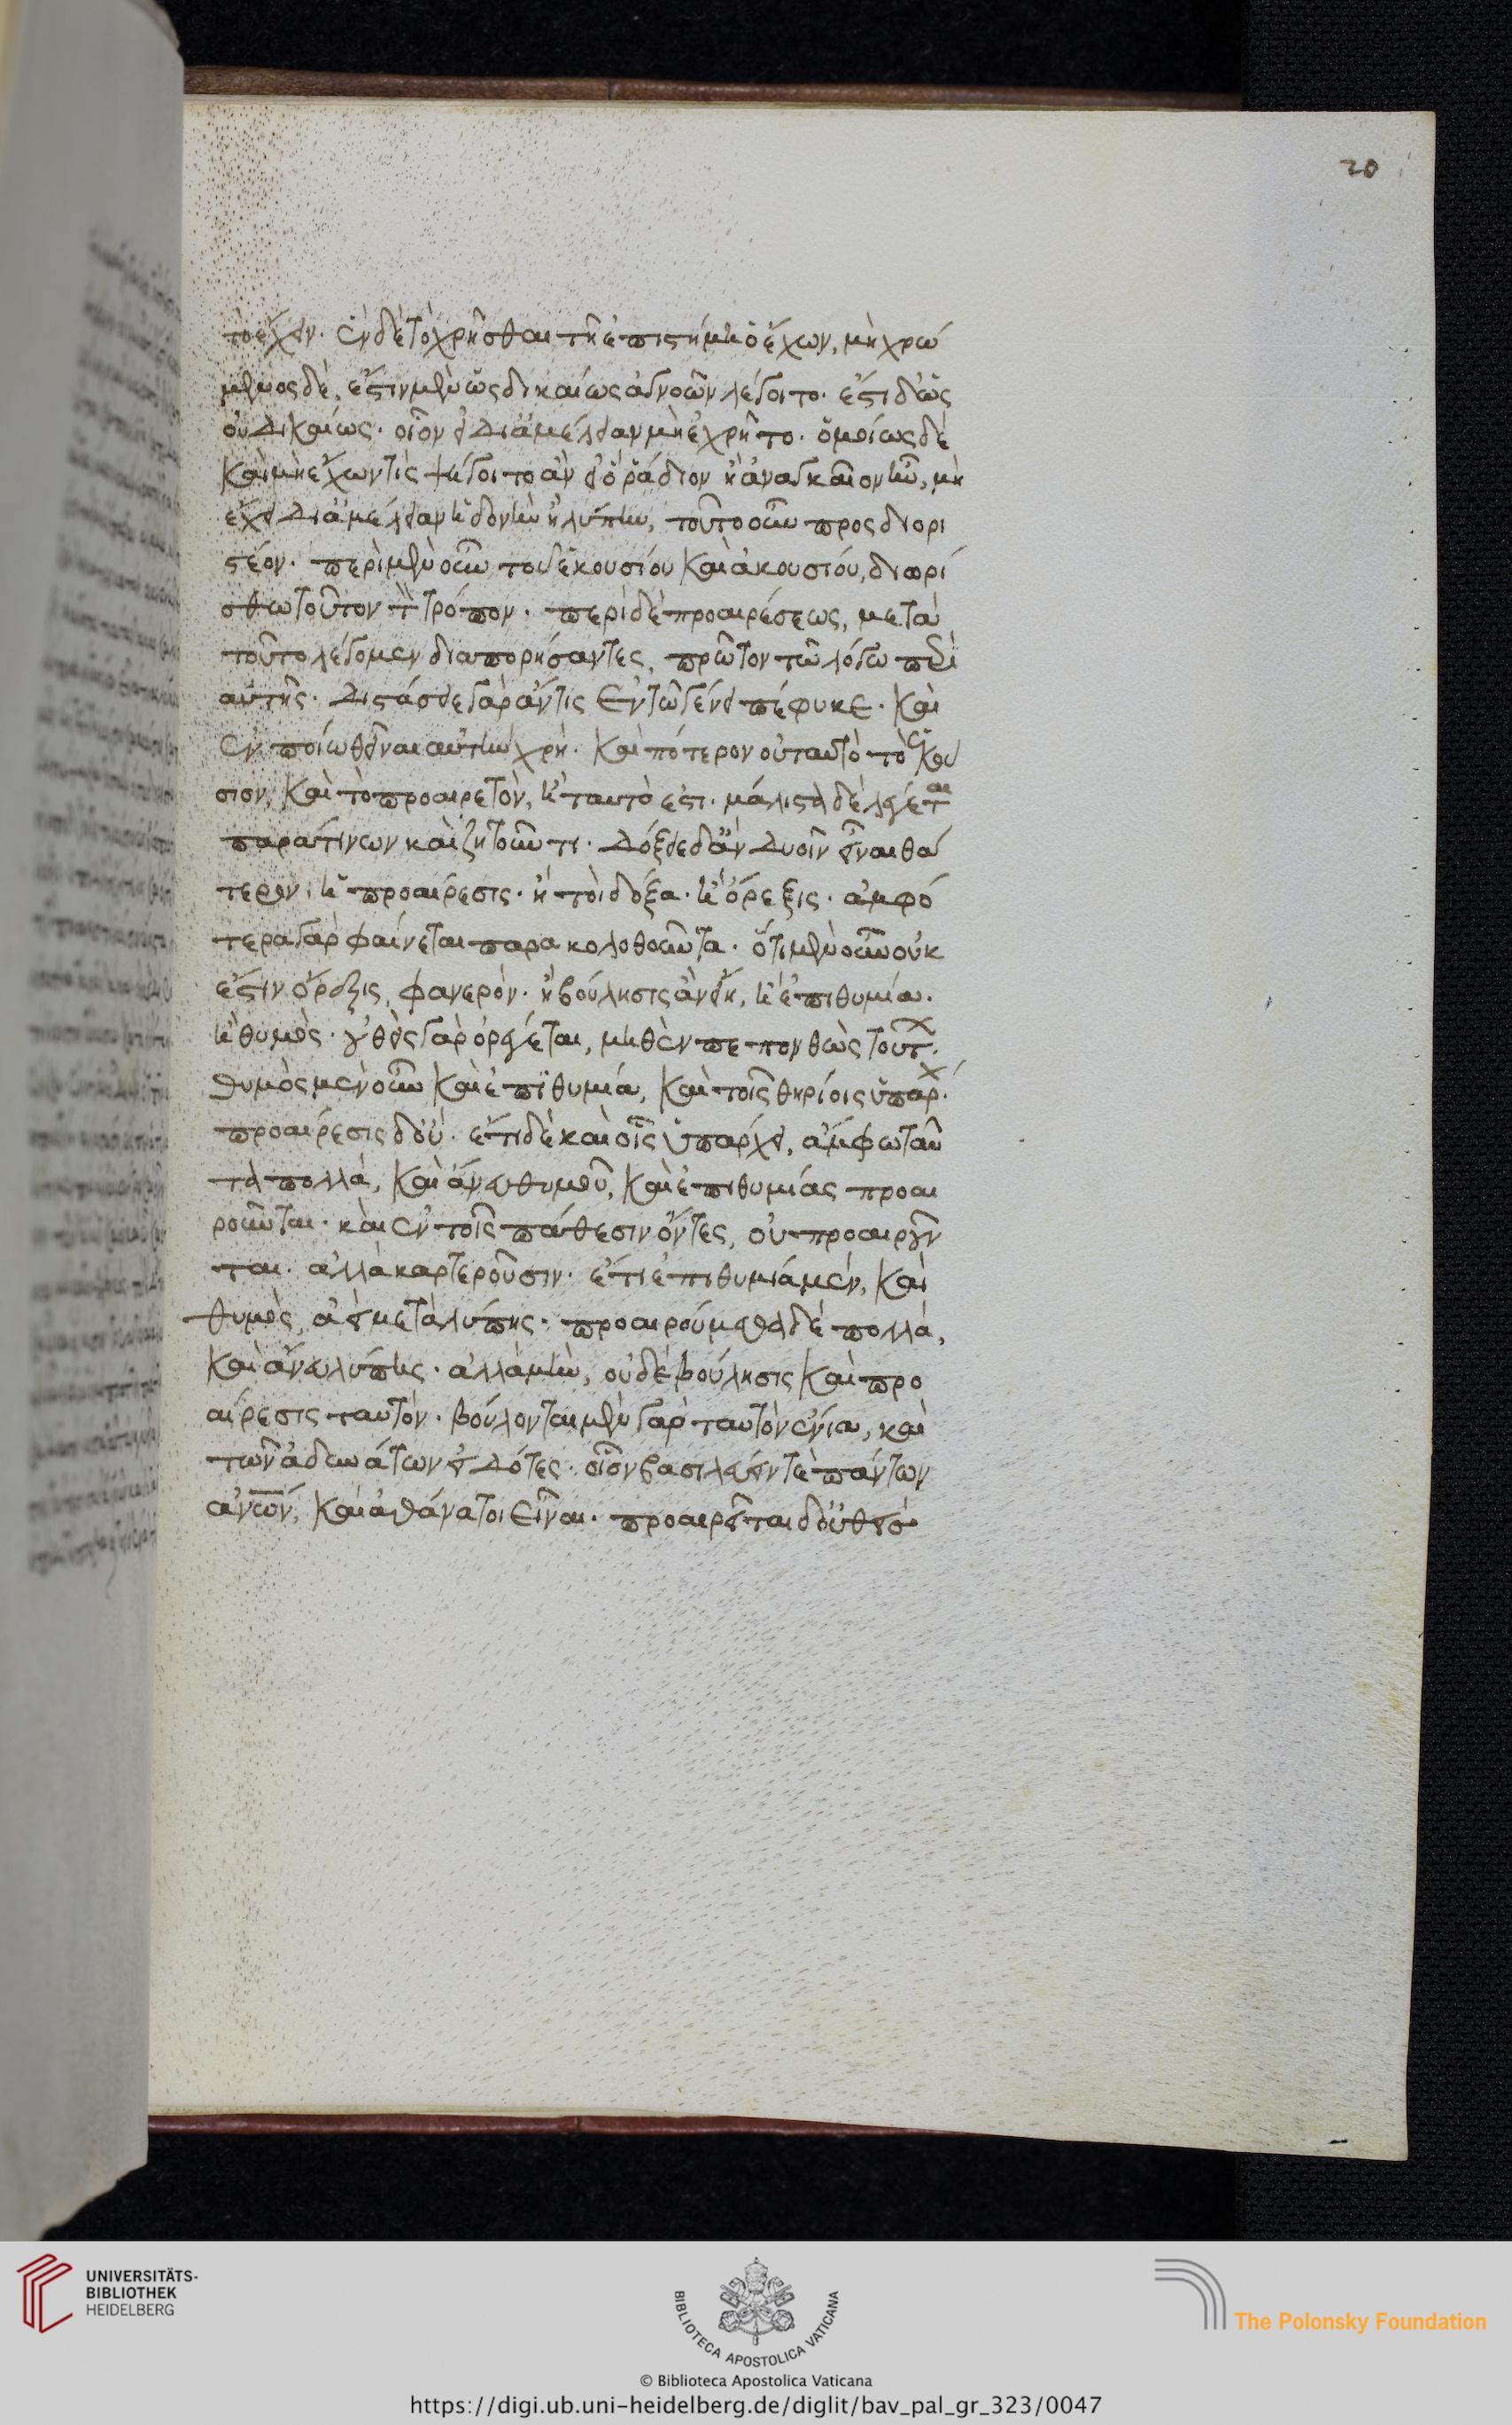 20
τὸ ἔχειν. ἓν δὲ τὸ χρῆσθαι τῆ ἐπιστήμη ὁ ἔχων, μὴ χρώ
μενος δὲ, ἔστιν μὲν ὡς δικαίως ἀγνοῶν λέγοιτο. ἔστι δ' ὡς
οὐ δικαίως. οἷον εἰ διἀμέλειαν μὴ ἐχρῆτο. ὁμοίως δὲ
καὶ μὴ ἔχων τὶς ψέγοιτο ἂν εἰ ὃ ῥάδιον ἢ ἀναγκαῖον ἦν, μὴ
ἔχει διἀμέλειαν ἢ δονὴν ἢ λύπην, τοῦτο οὖν προσδιορι
στέον. περὶ μὲν οὖν τοῦ ἑκουσίου καὶ ἀκουσίου, διωρί
σθω τοῦτον τὸν τρόπον. περὶ δὲ προαιρέσεως, μετὰ
τοῦτο λέγομεν διαπορήσαντες, πρῶτον τῶ λόγω περὶ
αὐτῆς. διστάσειε γὰρ ἄν τις ἐν τῶ γένει πέφυκε. καὶ
ἐν ποίω θεῖναι αὐτὴν χρή. καὶ πότερον οὐ ταυτὸ τὸ ἑκού
σιον, καὶ τὸ προαιρετὸν, ἢ ταυτὸ ἐστι. μάλιστα δὲ λέγεται
παρά τινων καὶ ζητοῦντι. δόξειε δ' ἂν δυοῖν εἶναι θά
τερον, ἡ προαίρεσις. ἤτοι δόξα. ἢ ὄρεξις. ἀμφό
τερα γὰρ φαίνεται παρακολοθοῦντα. ὅτι μὲν οὖν οὐκ
ἔστιν ὄρεξις, φανερόν. ἢ βούλησις ἂν εἴη, ἢ ἐπιθυμία.
ἢ θυμὸς. οὐθεὶς γὰρ ὀργέεται, μηθὲν πεπονθὼς τοῦτ.
θυμὸς μὲν οὖν καὶ ἐπιθυμία, καὶ τοῖς θηρίοις ὑπάρχ.
προαίρεσις δ' οὔ. ἔτι δὲ καὶ οἷς ὑπάρχει, ἄμφω ταῦ
τα πολλὰ, καὶ ἄνευ θυμοῦ, καὶ ἐπιθυμίας προαι
ροῦνται. καὶ ἐν τοῖς πάθεσιν ὄντες, οὐ προαιροῦν
ται. ἀλλὰ καρτεροῦσιν. ἔτι ἐπιθυμία μὲν, καὶ
θυμὸς, ἀεὶ μετὰ λύπης. προαιρούμεθα δὲ πολλὰ,
καὶ ἄνευ λύπης. ἀλλὰ μὴν, οὐδὲ βούλησις καὶ προ
αίρεσις ταυτόν. βούλονται μὲν γὰρ ταυτὸν ἔνια, καὶ
τῶν ἀδυνάτων εἰδότες. οἷον βασιλεύειν τὲ πάντων
ἀνων, καὶ ἀθάνατοι εἶναι. προαιρεῖται δ' οὐθεὶσ
UNIVERSITÄTS-
BIBLIOTHEK
HEIDELBERG
BIBLIOTECA APOSTOLICA VATICANA
The Polonsky Foundation
© Biblioteca Apostolica Vaticana
https://digi.ub.uni-heidelberg.de/diglit/bav_pal_gr_323/0047